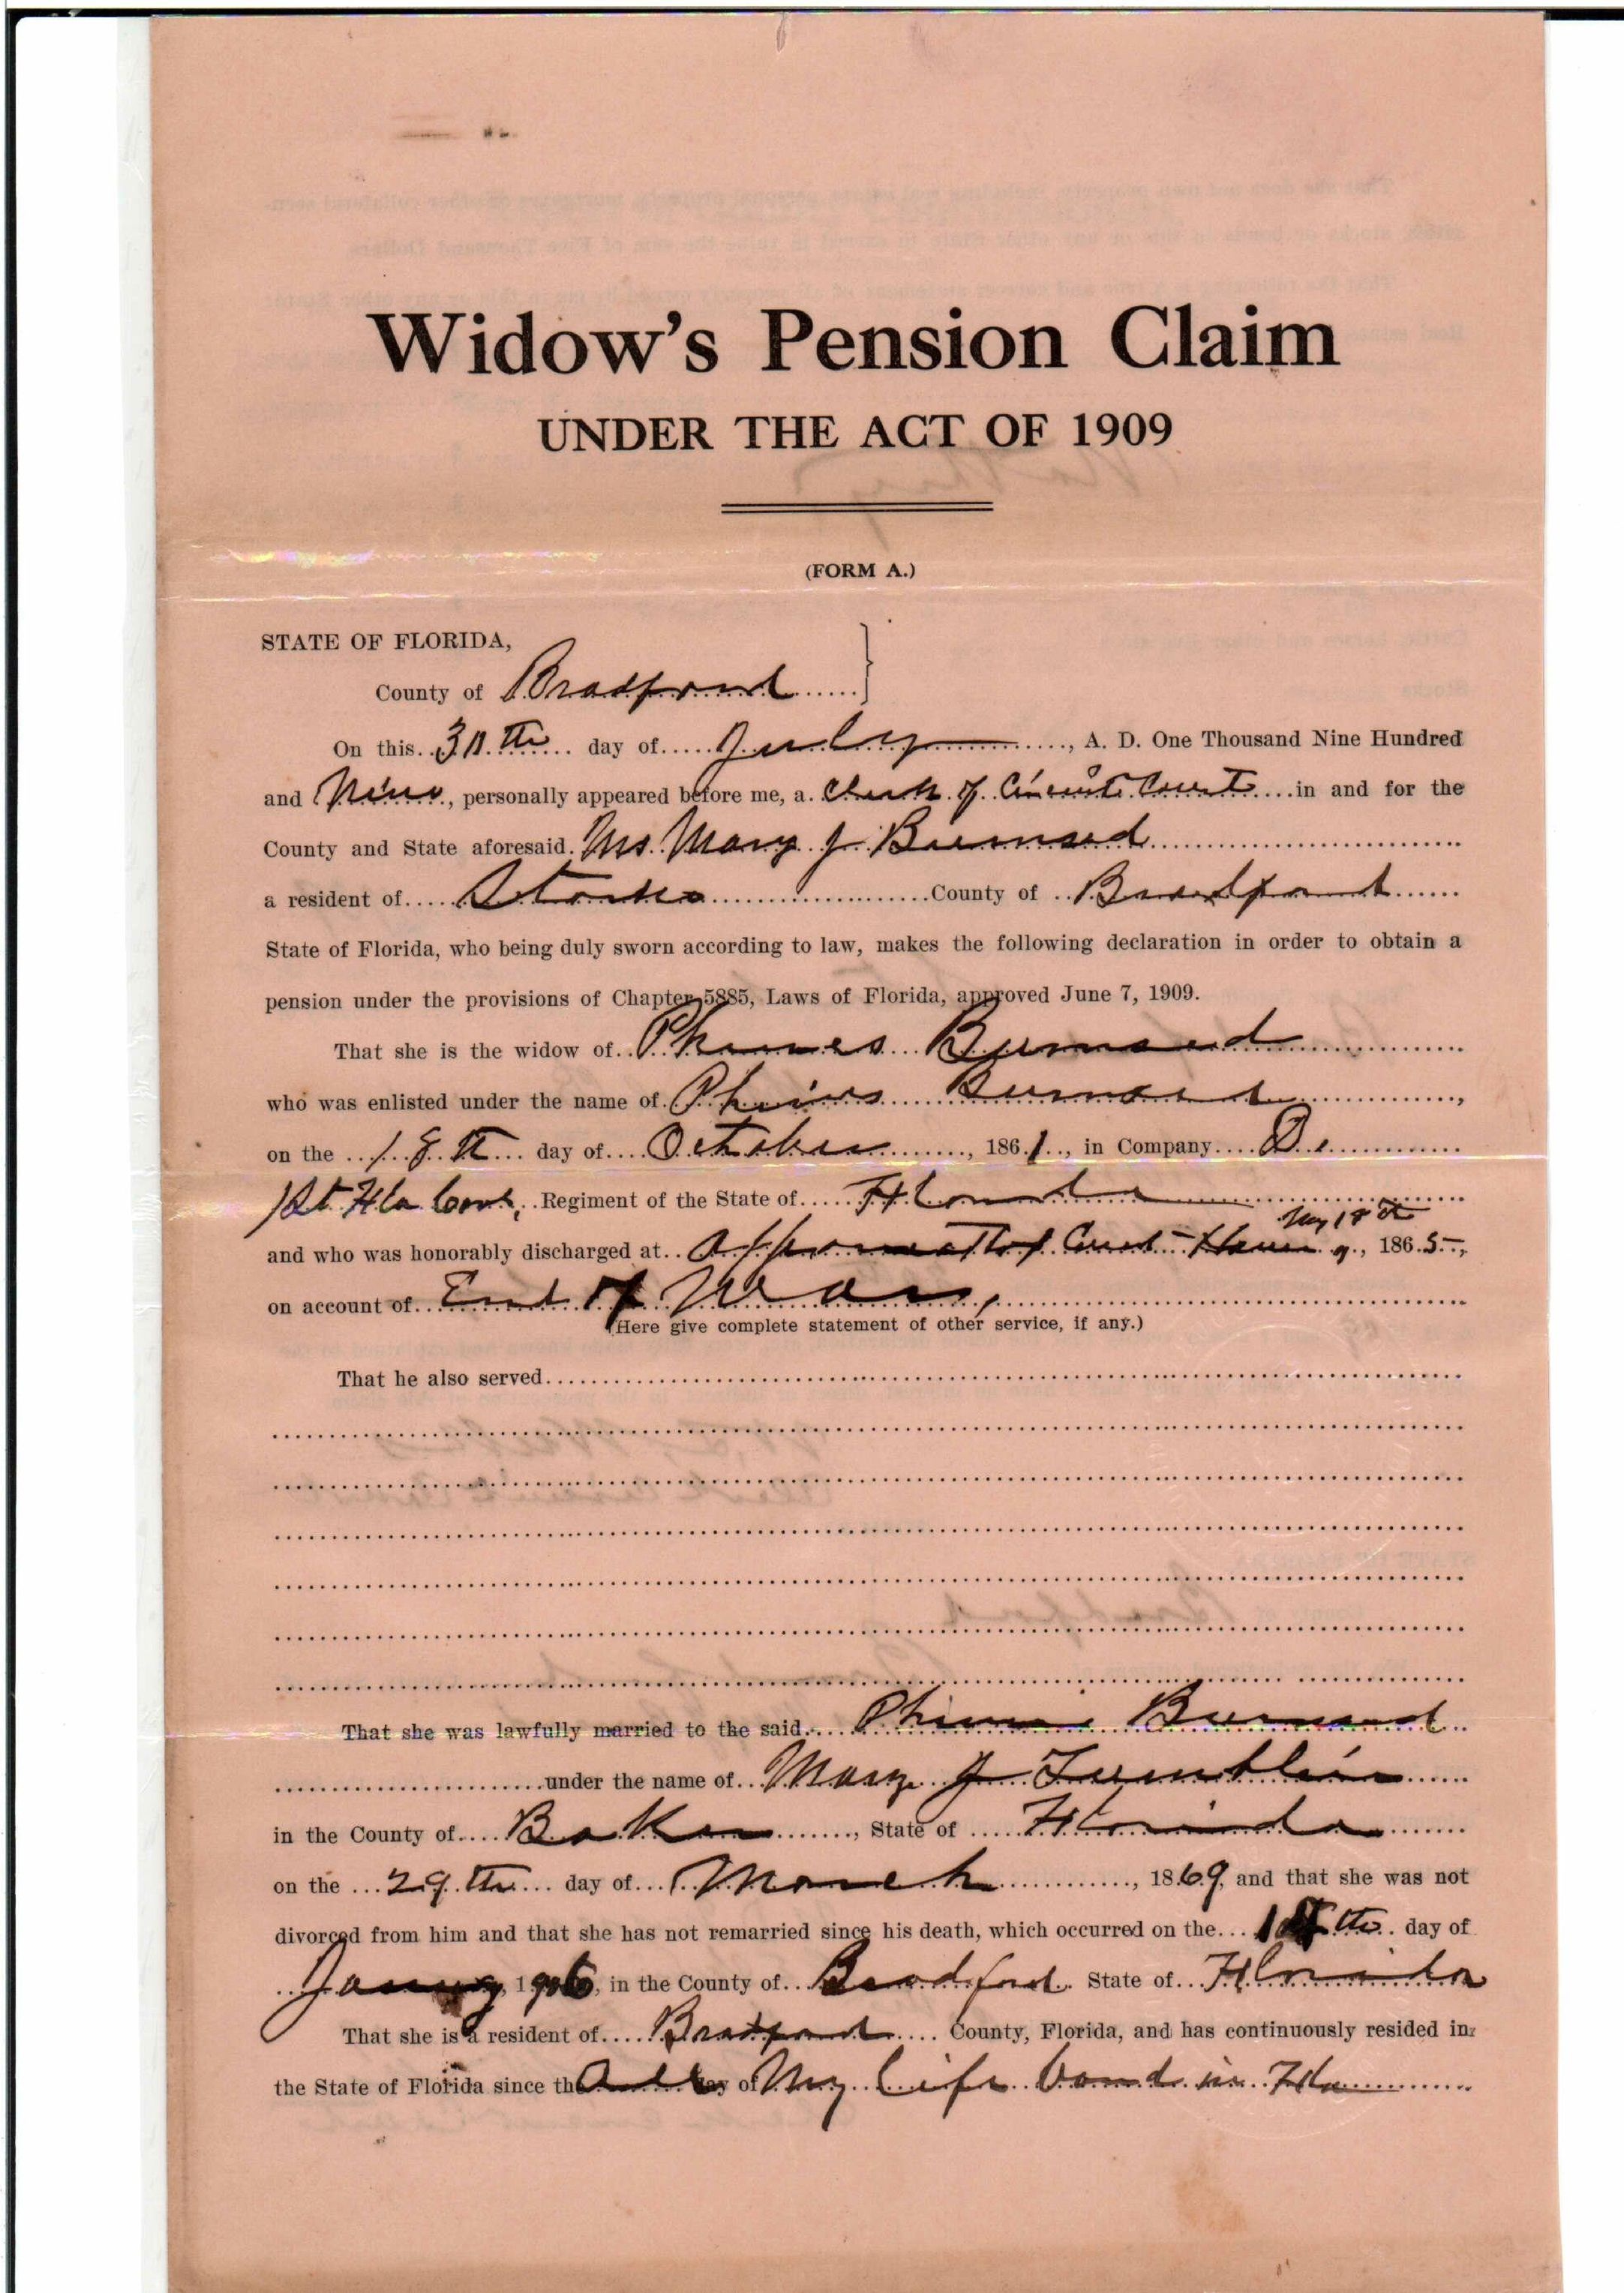 Widow's Pension Claim
UNDER THE ACT OF 1909
(FORM A.)
STATE OF FLORIDA,
County of Bradford
On this 30th day of July, A. D. One Thousand Nine Hundred
and Nine, personally appeared before me, a Clerk of Circuit Court in and for the
County and State aforesaid Mrs Mary J Burnsed
a resident of Starke County of Bradford
State of Florida, who being duly sworn according to law, makes the following declaration in order to obtain a
pension under the provisions of Chapter 5885, Laws of Florida, approved June 7, 1909.
That she is the widow of Burnsed
who was enlisted under the name of Burnsed,
on the 18th day of October, 1861, in Company D.
1st Fla Cav, Regiment of the State of Florida
May 18th
and who was honorably discharged at Appomattox Court House, 1865,
on account of End of War,
(Here give complete statement of other service, if any.)
That he also served
That she was lawfully married to the said Burnsed
under the name of Mary J
in the County of Baker, State of Florida
on the 29th day of March, 1869, and that she was not
divorced from him and that she has not remarried since his death, which occurred on the day of
1906, in the County of Bradford State of Florida
That she is a resident of Bradford County, Florida, and has continuously resided in
the State of Florida since the All day of My life born in Fla